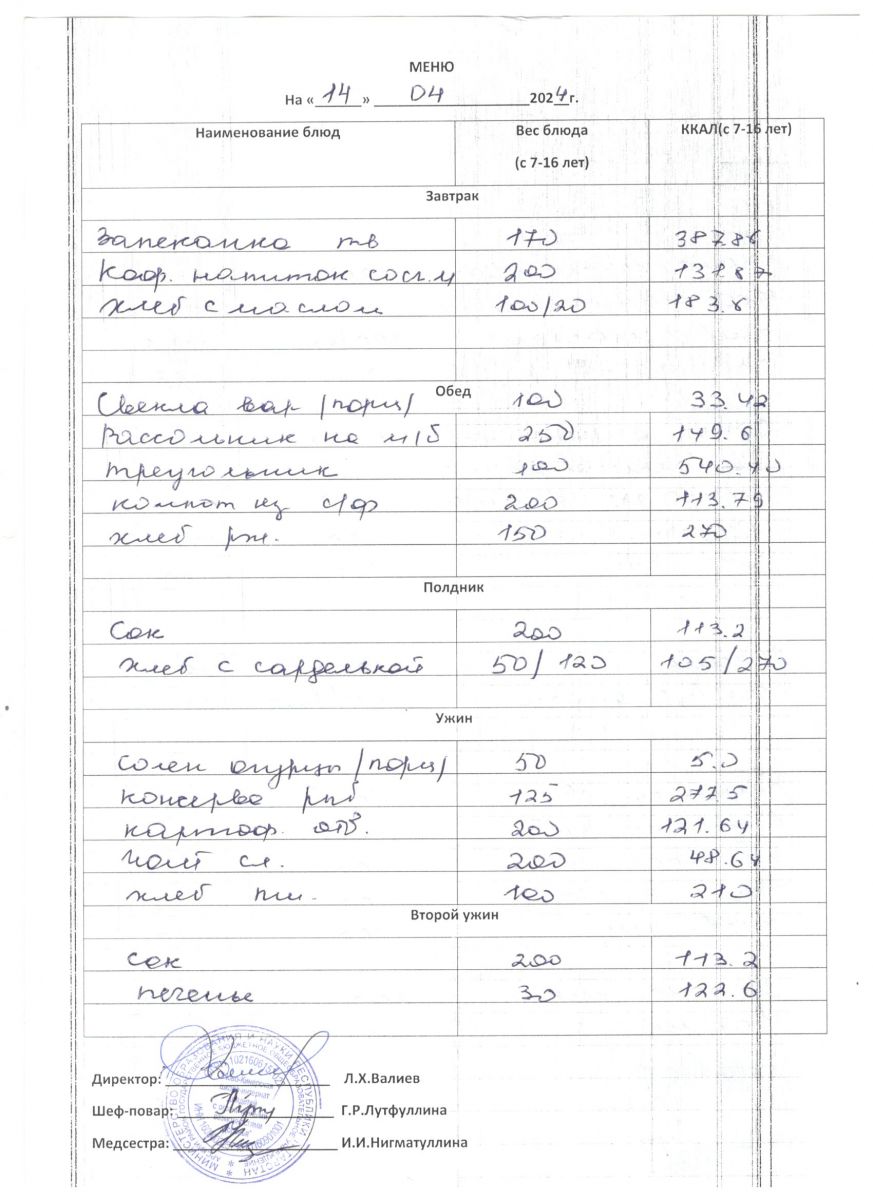 МЕНЮ
На «14» 04 2024г.
Наименование блюд Вес блюда (с 7-16 лет) ККАЛ(с 7-16 лет)
Завтрак
Запеканка тв 170 387.86
Коф. напиток сгс.м 200 131.87
Хлеб с маслом 100/20 183.6
Обед
Свекла вар /порц/ 100 33.42
Рассольник на м/б 250 149.6
треугольник 100 540.40
компот из с/ф 200 113.79
хлеб рж. 150 270
Полдник
Сок 200 113.2
хлеб с сарделькой 50/120 105/270
Ужин
Солен огурцы /порц/ 50 5.0
консерва рыб 125 277.5
картоф. отв. 200 121.64
Чай сл. 200 48.64
хлеб пш. 100 210
Второй ужин
Сок 200 113.2
печенье 30 122.6
Директор: Л.Х.Валиев
Шеф-повар: Г.Р.Лутфуллина
Медсестра: И.И.Нигматуллина